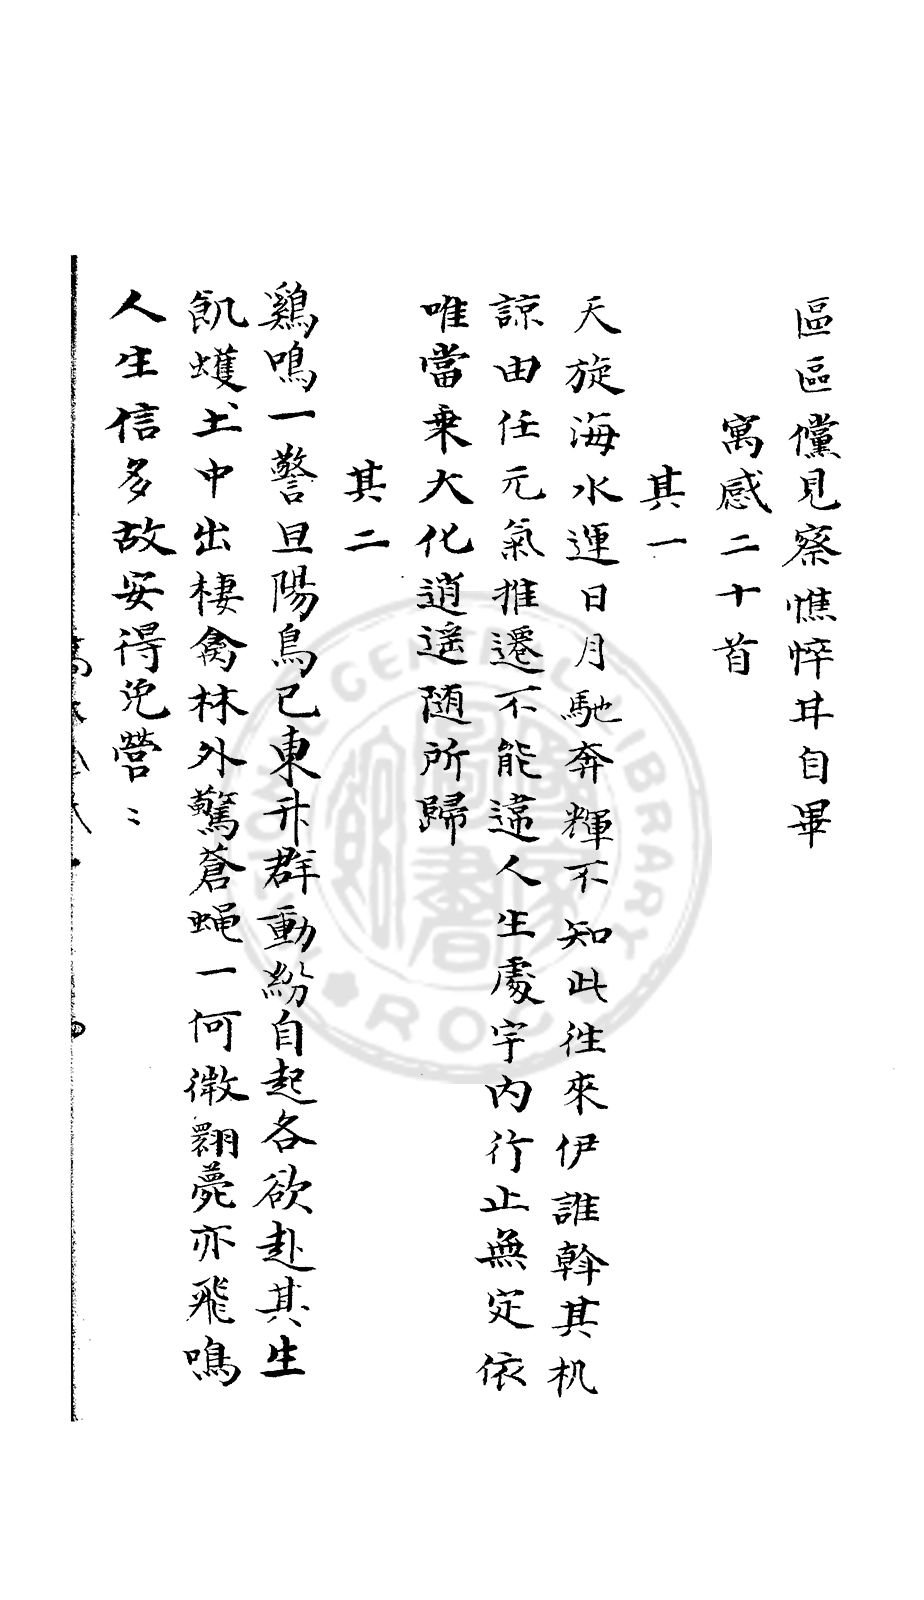 區區儻見察憔悴甘自畢
寓感二十首
其一
天旋海水運日月馳奔輝不知此徃來伊誰斡其机
諒由任元氣推遷不能違人生處宇内行止無定依
唯當乗大化逍遥随所歸
其二
鷄鳴一警旦陽烏已東升群動紛自起各欲赴其生
飢蠖土中出棲禽林外驚蒼蝇一何微翾薨亦飛鳴
人生信多故安得免營〻
NATIONAL CENTRAL LIBRARY R.O.C.
國家圖書館